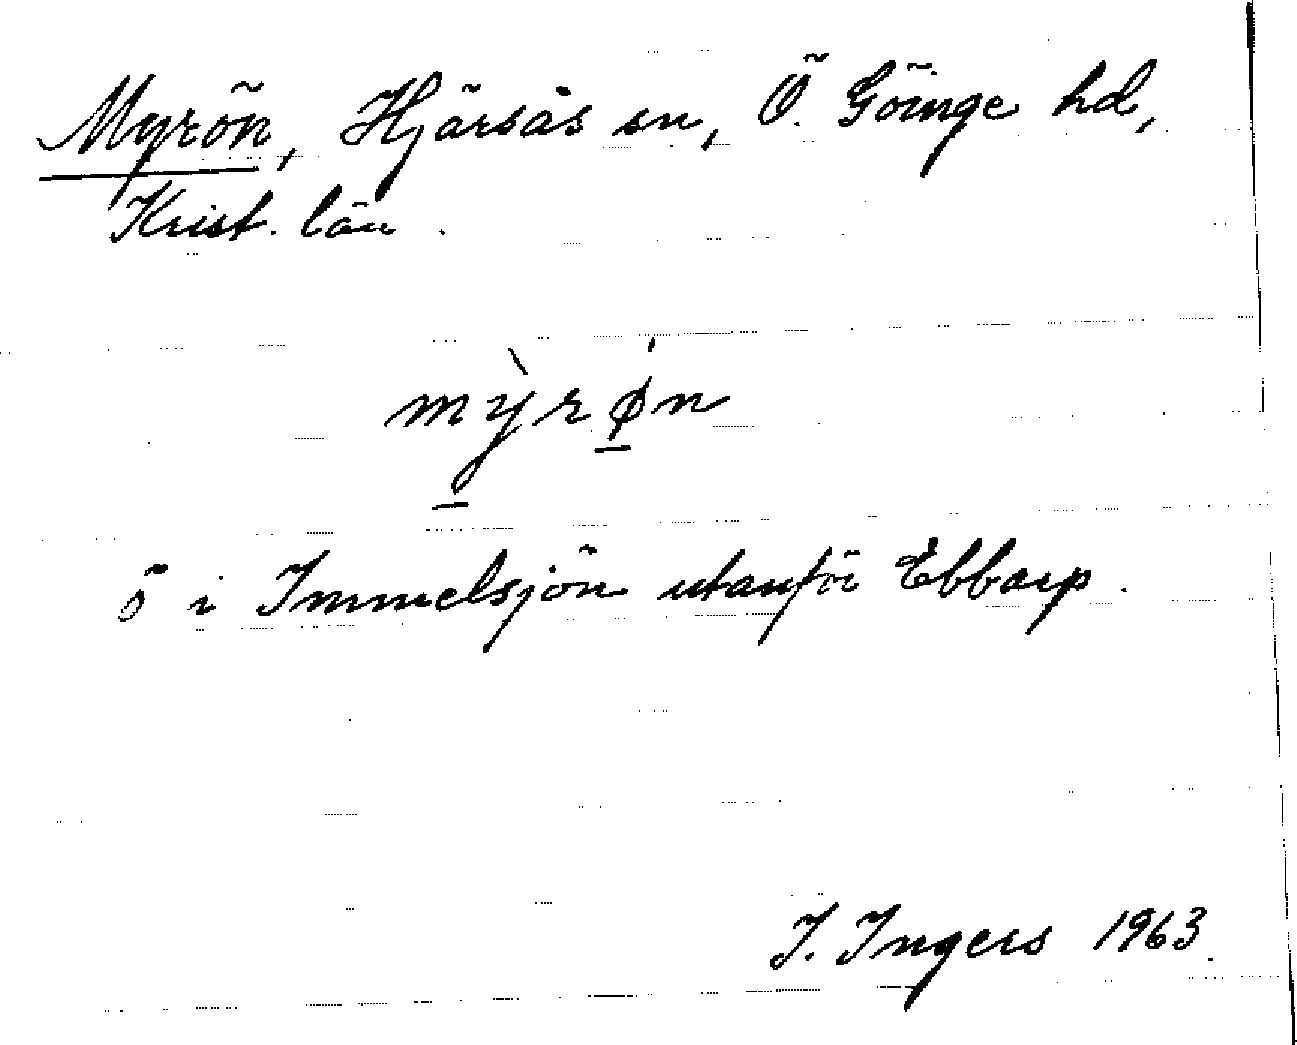 Myrön, Hjärsås sn, Ö. Göinge hd,
Krist. län.
mỳrǿn
ö i Immelsjön utanför Ebbarp.
I. Ingers 1963.